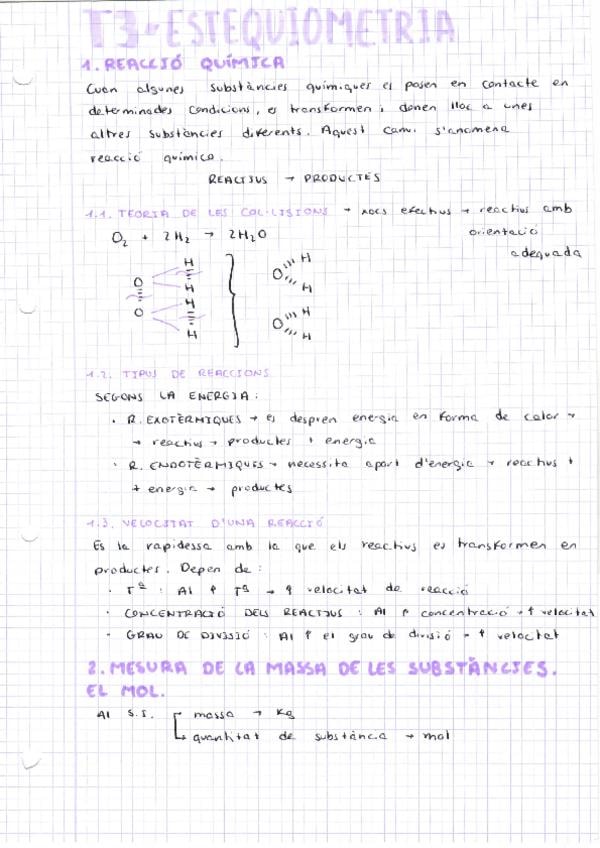 T3-ESTEQUIOMETRIA
1. REACCIÓ QUÍMICA
Cuan algunes substàncies químiques es posen en contacte en
determinades condicions, es transformen i donen lloc a unes
altres substàncies diferents. Aquest canvi s'anomena
reacció química.
REACTIUS → PRODUCTES
1.1. TEORIA DE LES COL·LISIONS → xocs efectius → reactius amb
orientació
adequada
O₂ + 2H₂ → 2H₂O
H
O H O H
H
O H O H
H H
1.2. TIPUS DE REACCIONS
SEGONS LA ENERGIA:
· R. EXOTÈRMIQUES → es despren energia en forma de calor →
→ reactius → productes + energia
· R. ENDOTÈRMIQUES → necessita aport d'energia → reactius +
+ energia → productes
1.3. VELOCITAT D'UNA REACCIÓ
Es la rapidessa amb la que els reactius es transformen en
productes. Depen de:
· Tª : Al ↑ Tª → ↑ velocitat de reacció
· CONCENTRACIÓ DELS REACTIUS : Al ↑ concentració → ↑ velocitat
· GRAU DE DIVISIÓ : Al ↑ el grau de divisió → ↑ velocitat
2. MESURA DE LA MASSA DE LES SUBSTÀNCIES.
EL MOL.
Al S.I. massa → Kg
quantitat de substància → mol